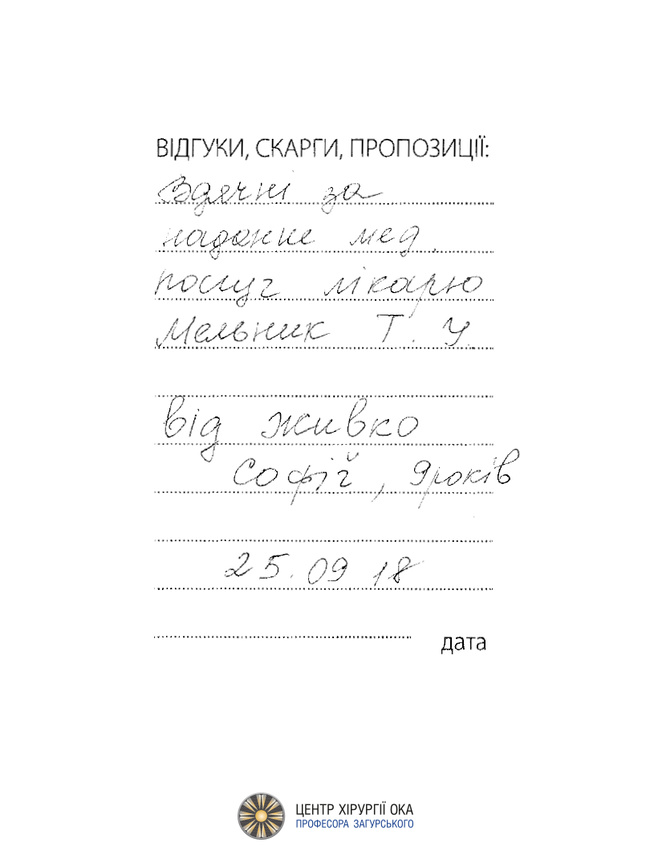 ВІДГУКИ, СКАРГИ, ПРОПОЗИЦІЇ:
Вдячні за
надання мед.
послуг лікарю
Мельник Т. У.
від Живко
Софій, 9 років
25.09 18
дата
ЦЕНТР ХІРУРГІЇ ОКА
ПРОФЕСОРА ЗАГУРСЬКОГО